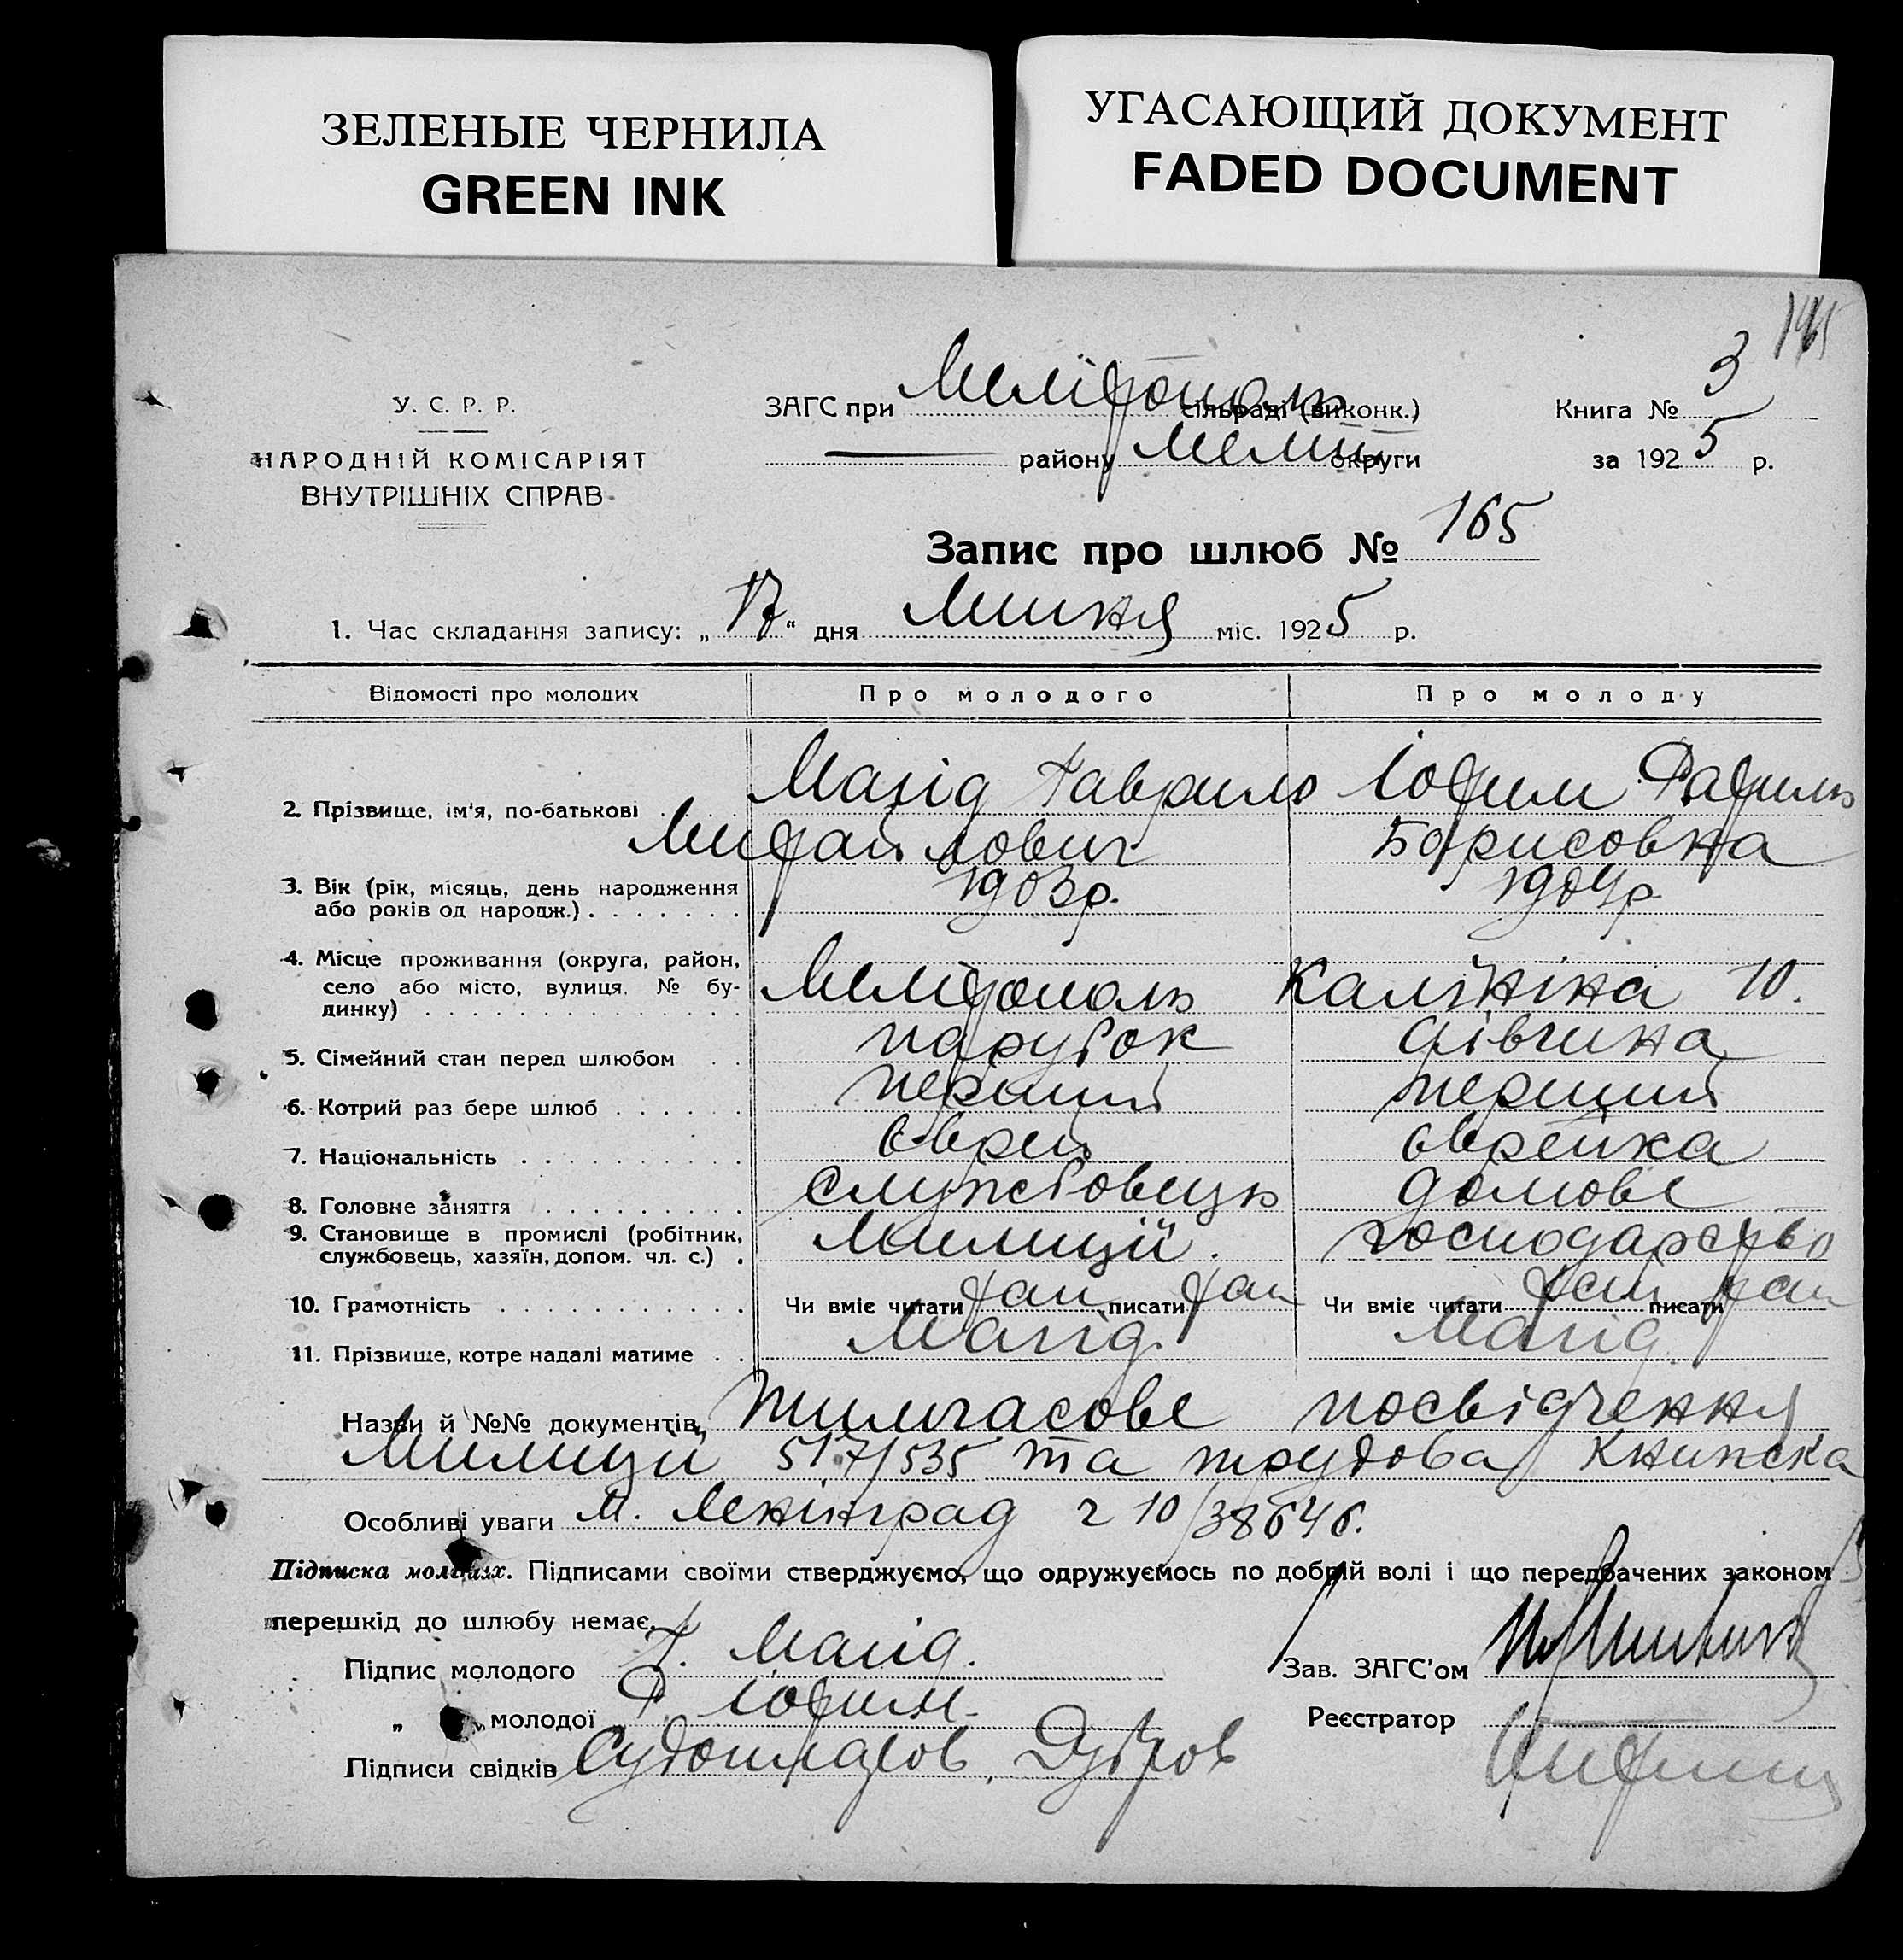 ЗЕЛЕНЫЕ ЧЕРНИЛА
GREEN INK
УГАСАЮЩИЙ ДОКУМЕНТ
FADED DOCUMENT
У. С. Р. Р.
НАРОДНІЙ КОМІСАРІЯТ
ВНУТРІШНІХ СПРАВ
ЗАГС при Мелітополь сільраді (виконк.)
району Меліт округи
Книга № 3
за 1925 р.
Запис про шлюб № 165
1. Час складання запису: „17“ дня Липня міс. 1925 р.
Відомості про молодих Про молодого Про молоду
2. Прізвище, ім'я, по-батькові Магід Гаврило Михайлович
Борисовна
3. Вік (рік, місяць, день народження або років од народж.) 1903р. 1904р.
4. Місце проживання (округа, район, село або місто, вулиця, № будинку) Мелітополь Калініна 10.
5. Сімейний стан перед шлюбом парубок дівчина
6. Котрий раз бере шлюб перший перший
7. Національність єврей єврейка
8. Головне заняття службовець домове
9. Становище в промислі (робітник, службовець, хазяїн, допом. чл. с.) Милиції. господарство
10. Грамотність Чи вміє читати так писати так Чи вміє читати так писати так
11. Прізвище, котре надалі матиме Магід. Магід.
Назви й №№ документів, тимчасове посвідчення
Милиции 517/535 та трудова книжка
Особливі уваги м. Ленінград
Підписка молодих. Підписами своїми стверджуємо, що одружуємось по добрій волі і що передбачених законом
перешкід до шлюбу немає.
Підпис молодого Г. Магід.
Зав. ЗАГС'ом
„ „ молодої
Реєстратор
Підписи свідків Дубров